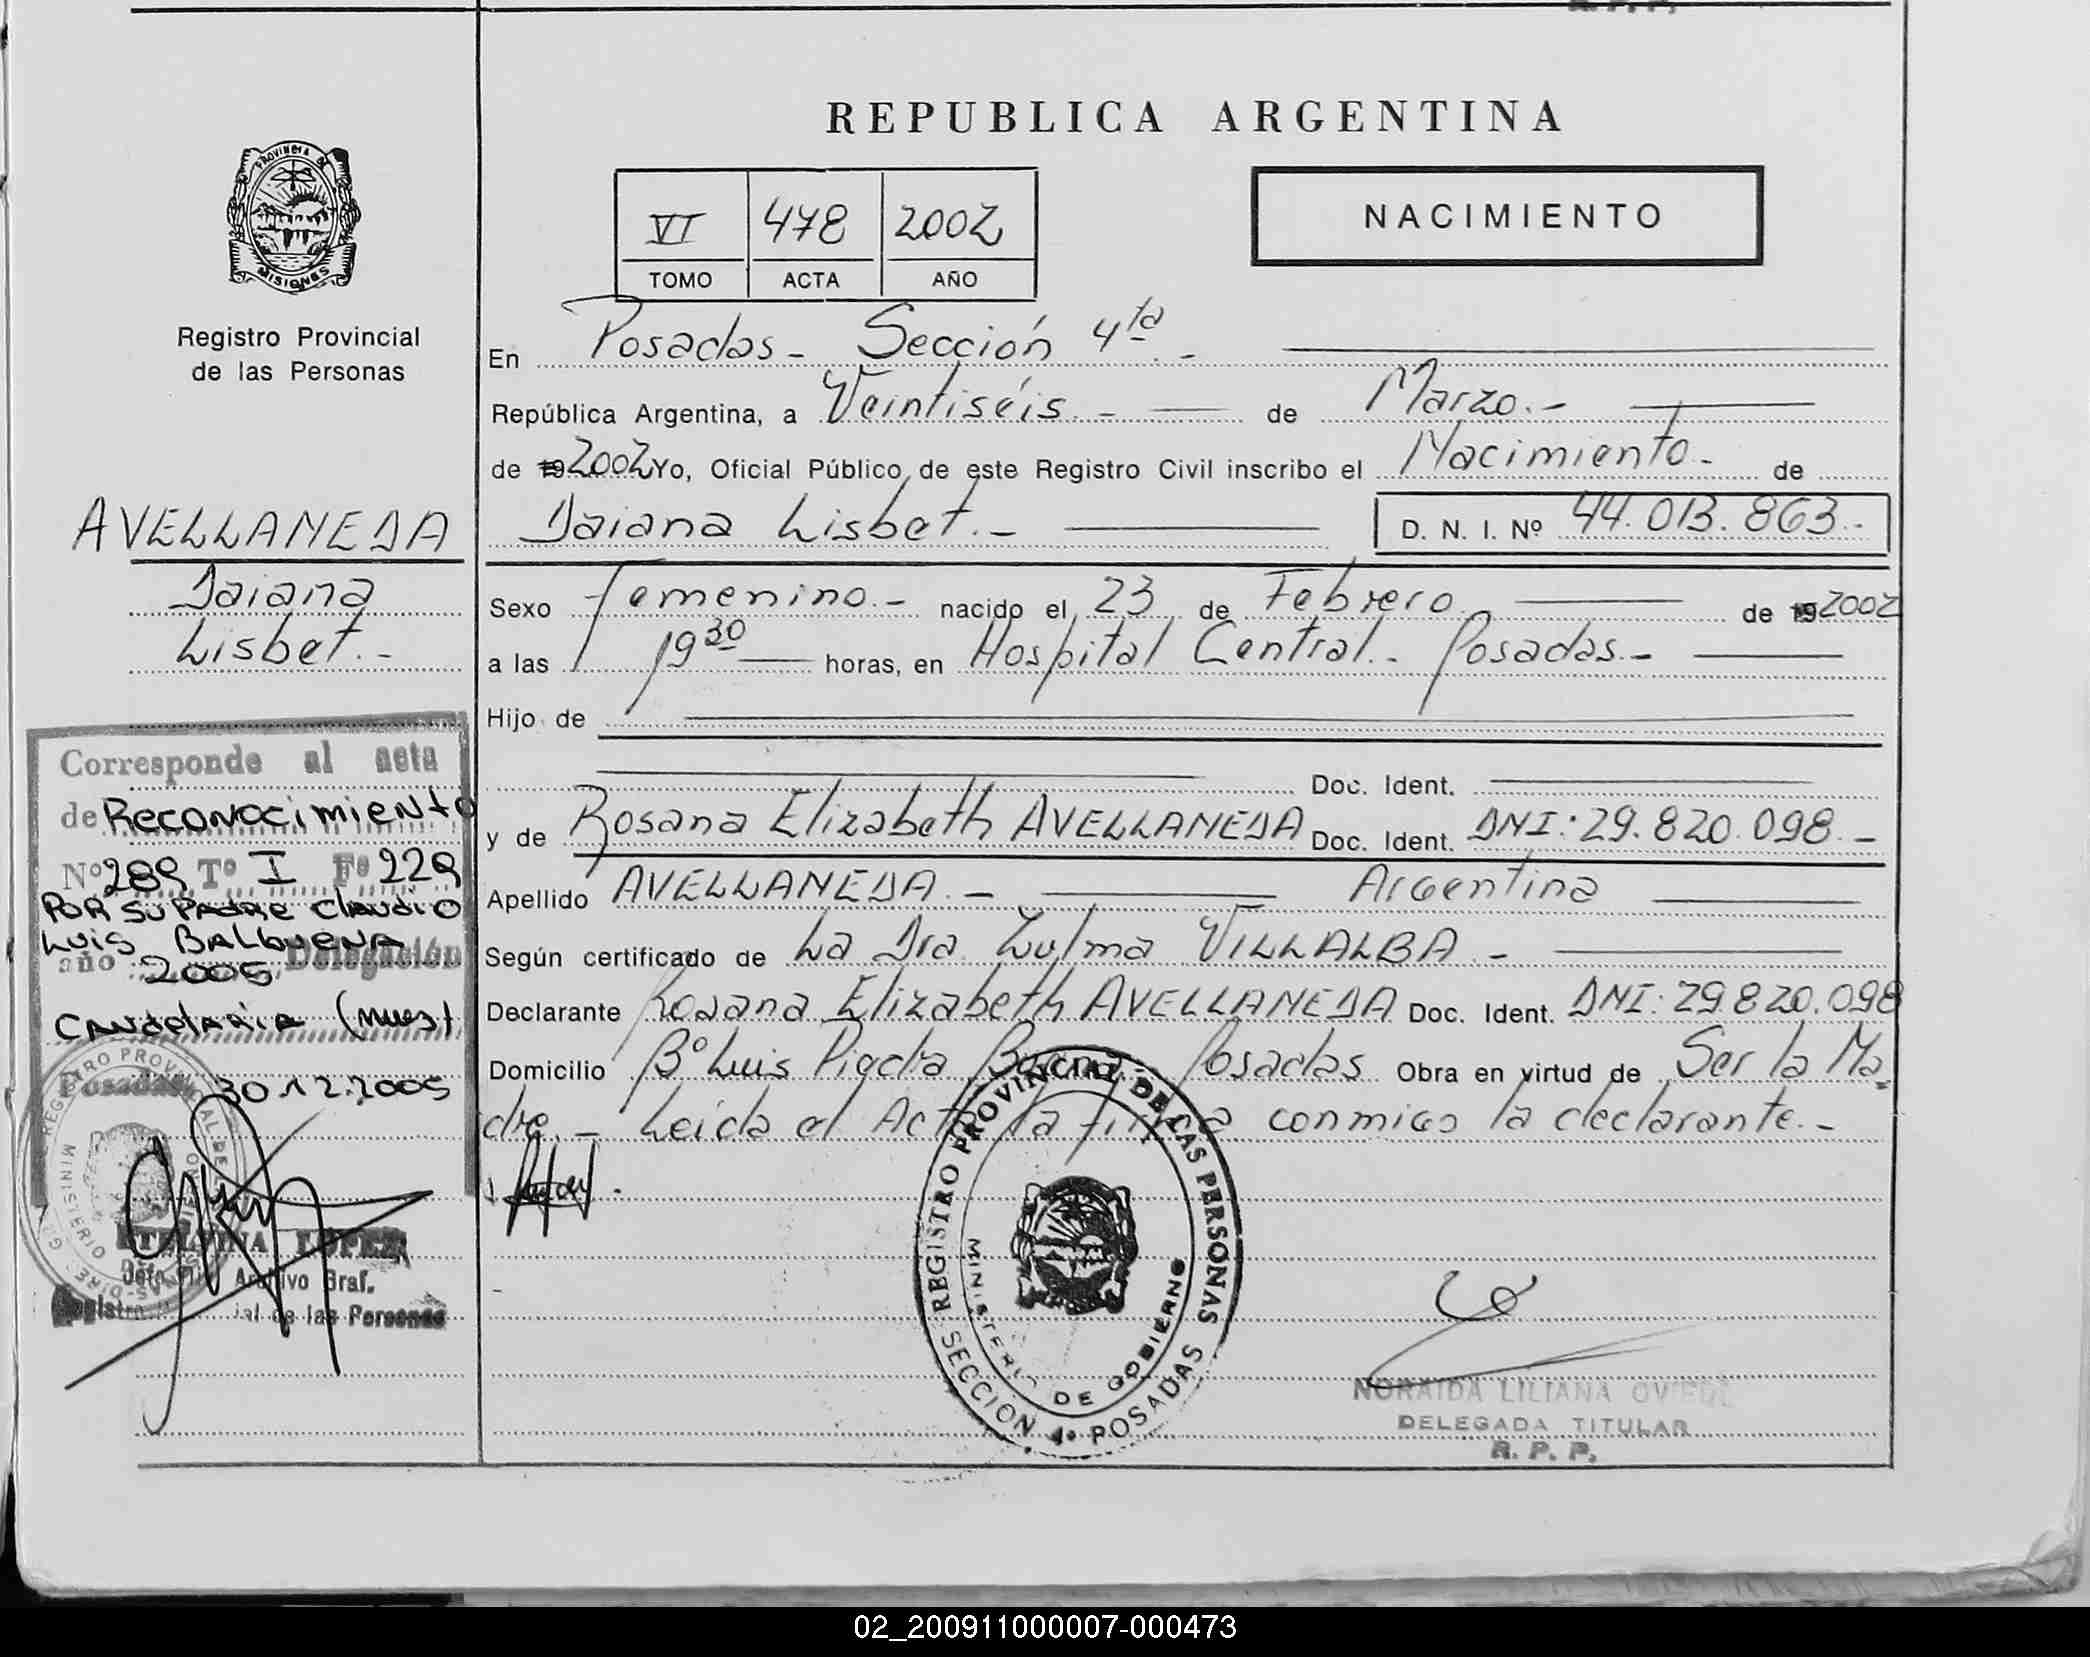 R. P. P.
REPUBLICA ARGENTINA
PROVINCIA DE
MISIONES
Registro Provincial
de las Personas
VI 478 2002
TOMO ACTA AÑO
NACIMIENTO
En Posadas - Sección 4ta. -
República Argentina, a Veintiséis. - de Marzo. -
de 19 2002 Yo, Oficial Público, de este Registro Civil inscribo el Nacimiento - de
Daiana Lisbet. - D. N. I. Nº 44.013.863. -
Sexo Femenino. - nacido el 23 de Febrero de 19 2002
a las 19 30 horas, en Hospital Central. - Posadas. -
Hijo de
Doc. Ident.
y de Rosana Elizabeth AVELLANEDA Doc. Ident. DNI: 29.820.098. -
Apellido AVELLANEDA. - Argentina
Según certificado de La Dra. Zulma VILLALBA -
Declarante Rosana Elizabeth AVELLANEDA Doc. Ident. DNI: 29.820.098
Domicilio Bº Luis Piedra Buena. Posadas Obra en virtud de Ser la Ma
dre. - Leída el Acta la firma conmigo la declarante. -
AVELLANEDA
Daiana
Lisbet. -
Corresponde al acta
de Reconocimiento
Nº 289 Tº I Fº 229
POR SU PADRE Claudio
Luis BALBUENA
año 2005 Delegación
Candelaria (Mnes)
Posadas 30.12.2005
REGISTRO PROVINCIAL DE LAS PERSONAS
MINISTERIO
ETELVINA LOPEZ
Archivo Graf.
Registro de las Personas
REGISTRO PROVINCIAL DE LAS PERSONAS
MINISTERIO DE GOBIERNO
SECCION 4ª POSADAS
NORAIDA LILIANA OVIEDO
DELEGADA TITULAR
R. P. P.
02_200911000007-000473